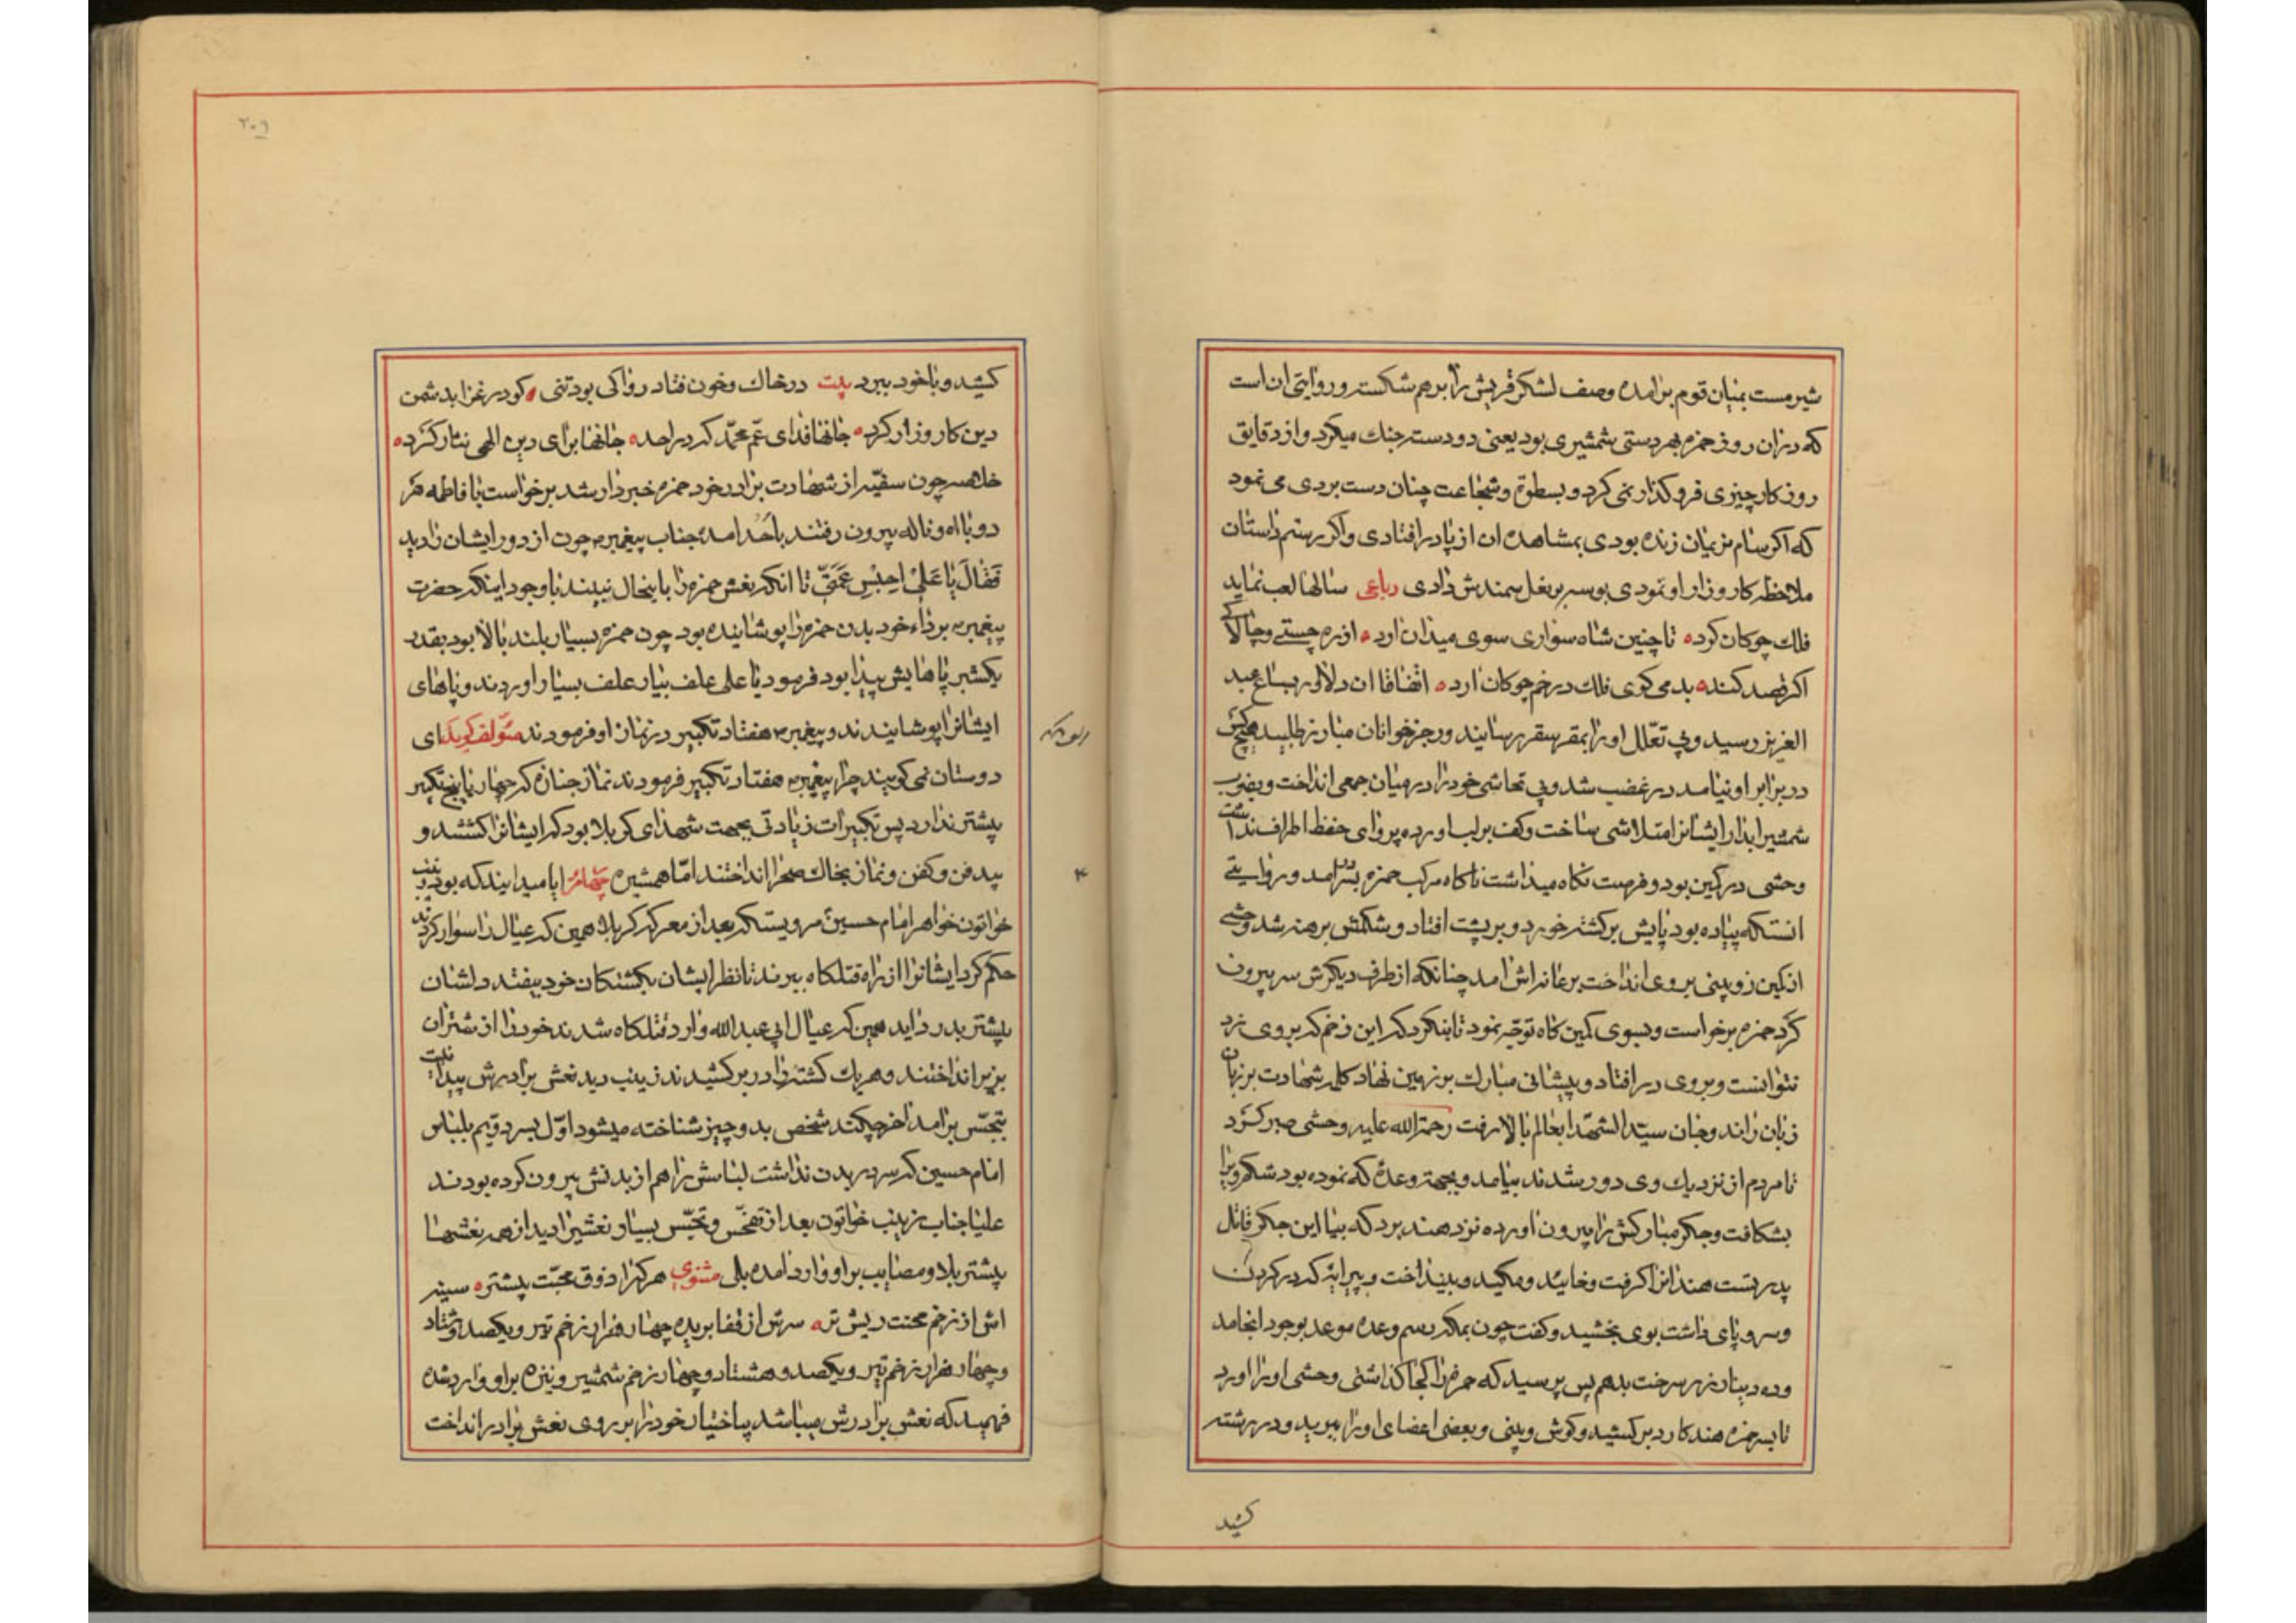 شیر مست بمیان قوم برامده وصف لشکر قریش را برهم شکسته و روایتی ان است
که دران روز حمزه بهر دستی شمشیری بود یعنی دو دسته جنك میکرد و از دقایق
روز کار چیزی فرو کذار نمی کرد و بسطوة و شجاعت چنان دست بردی می نمود
که اکر سام نریمان زنده بودی بمشاهده ان از پا در افتادی و اکر رستم داستان
ملاحظه کار وزار او نمودی بوسه بر نعل سمندش دادی رباعی سالها لعب نماید
فلك چوکان کرد تا چنین شاه سواری سوی میدان اورد از ره چستی و چالاکی
اکر قصد کند بدمی کوی فلك در خم چوکان ارد اتفاقا ان دلاور بسباع عبد
العزیز رسید و بی تعلل او را بمقر سقر رسانید و رجز خوانان مبارز طلبید هیچکس
در برابر او نیامد در غضب شد و بی تحاشی خود را در میان جمعی انداخت و بضرب
شمشیر ابدار ایشانرا متلاشی ساخت و کف بر لب اورده پروای حفظ اطراف نداشت
وحشی در کمین بود و فرصت نکاه میداشت ناکاه مرکب حمزه بسر درامد و روایتی
انستکه پیاده بود پایش بر کشته خورد و بر پشت افتاد و شکمش برهنه شد وحشی
از کمین زوبینی بروی انداخت بر عانه اش امد چنانکه از طرف دیکرش سر بیرون
کرد حمزه برخواست و بسوی کمین کاه توجه نمود تا بنکرد که این زخم که بر وی زد
نتوانست و بروی در افتاد و پیشانی مبارك بر زمین نهاد کلمه شهادت بر زبان
زبان راند و جان سید الشهدا بعالم بالا رفت رحمة الله علیه وحشی صبر کرد
تا مردم از نزدیك وی دور شدند بیامد و بجهة وعدهٔ که نموده بود شکم ویرا
بشکافت و جکر مبارکش را بیرون اورده نزد هند برد که بیا این جکر قاتل
پدر تست هند انرا کرفت و خائید و مکید و بینداخت و پیرایهٔ که در کردن
و سر و پای داشت بوی بخشید و کفت چون بمکه رسم وعده موعد بوجود انجامد
و ده دینار زر سرخت بدهم پس پرسید که حمزه را کجا کذاشتی وحشی او را اورد
تا بسر حمزه هند کارد بر کشید و کوش و بینی و بعضی اعضای او را ببرید و در رشته
کشید
۲۰۹
کشید و با خود ببرد بیت در خاك و خون فتاد روا کی بود تنی کو در غزا بدشمن
دین کار وزار کرد جانها فدای عم محمد که در احد جانها برای دین الهی نثار کرد
خلاصه چون صفیه از شهادت برادر خود حمزه خبردار شد برخواست با فاطمه هر
دو با اه و ناله بیرون رفتند باحد امده جناب پیغمبر چون از دور ایشان را دید
فَقالَ یا عَلیُ احبِس عَمَّتی تا انکه نعش حمزه را باینحال نبیند با وجود اینکه حضرت
پیغمبر برداء خود بدن حمزه را پوشاینده بود چون حمزه بسیار بلند بالا بود بقدر
یکشبر پاهایش پیدا بود فرمود یا علی علف بیار علف بسیار اوردند و پاهای
ایشانرا پوشانیدند و پیغمبر هفتاد تکبیر در نماز او فرمودند مؤلف کوید ای
دوستان نمی کویید چرا پیغمبر هفتاد تکبیر فرمودند نماز جنازه که چهار یا پنج تکبیر
بیشتر ندارد پس تکبیرات زیادتی بجهت شهدای کربلا بود که ایشانرا کشتند و
بیدفن و کفن و نماز بخاك صحرا انداختند اما همشیره چهام ایا میدانید که بود زینب
خواتون خواهر امام حسین مرویستکه بعد از معرکه کربلا همین که عیال را سوار کردند
حکم کرد ایشانرا از راه قتلکاه ببرند تا نظر ایشان بکشتکان خود بیفتد دلشان
بیشتر بدرد اید همین که عیال ابی عبد الله وارد قتلکاه شدند خود را از شتران
بزیر انداختند و هر یك کشتهٔ را در بر کشیدند زینب دید نعش برادرش پیدا نیست
بتجسس برامد اخر چکند شخص بدو چیز شناخته میشود اول بسر دویم بلباس
امام حسین که سر در بدن نداشت لباسش را هم از بدنش بیرون کرده بودند
علیا جناب زینب خواتون بعد از تفحص و تجسس بسیار نعشی را دید از همه نعشها
بیشتر بلا و مصایب بر او وارد امده بلی مثنوی هر که را ذوق محبت بیشتر سینه
اش از زخم محنت ریش تر سرش از قفا بریده چهار هزار زخم تیر و یکصد و هشتاد
و چهار هزار زخم تیر و یکصد و هشتاد و چهار زخم شمشیر و نیزه بر او وارد شده
فهمید که نعش برادرش میباشد بیاختیار خود را بر روی نعش برادر انداخت